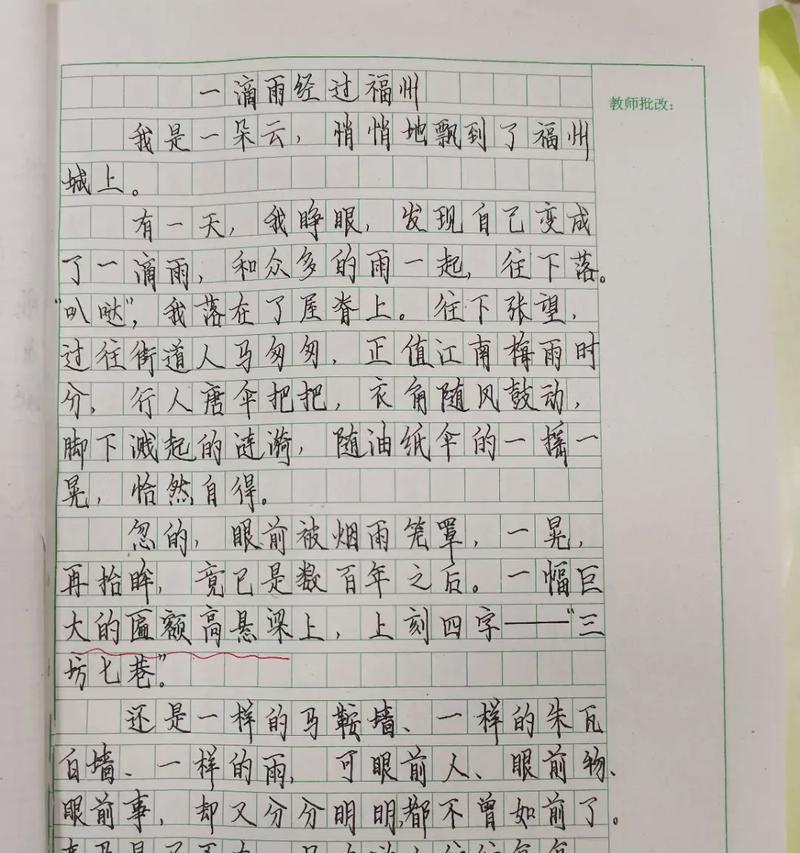 一滴雨经过福州
教师批改：
我是一朵云，悄悄地飘到了福州
城上。
有一天，我睁眼，发现自己变成
了一滴雨，和众多的雨一起，往下落。
“叭哒”，我落在了屋脊上。往下张望，
过往街道人马匆匆，正值江南梅雨时
分，行人唐伞把把，衣角随风鼓动，
脚下溅起的涟漪，随油纸伞的一摇一
晃，恰然自得。
忽的，眼前被烟雨笼罩，一晃，
再抬眸，竟已是数百年之后。一幅巨
大的匾额高悬梁上，上刻四字——“三
坊七巷”。
还是一样的马鞍墙、一样的朱瓦
白墙、一样的雨，可眼前人、眼前物、
眼前事，却又分分明明，都不曾如前了。